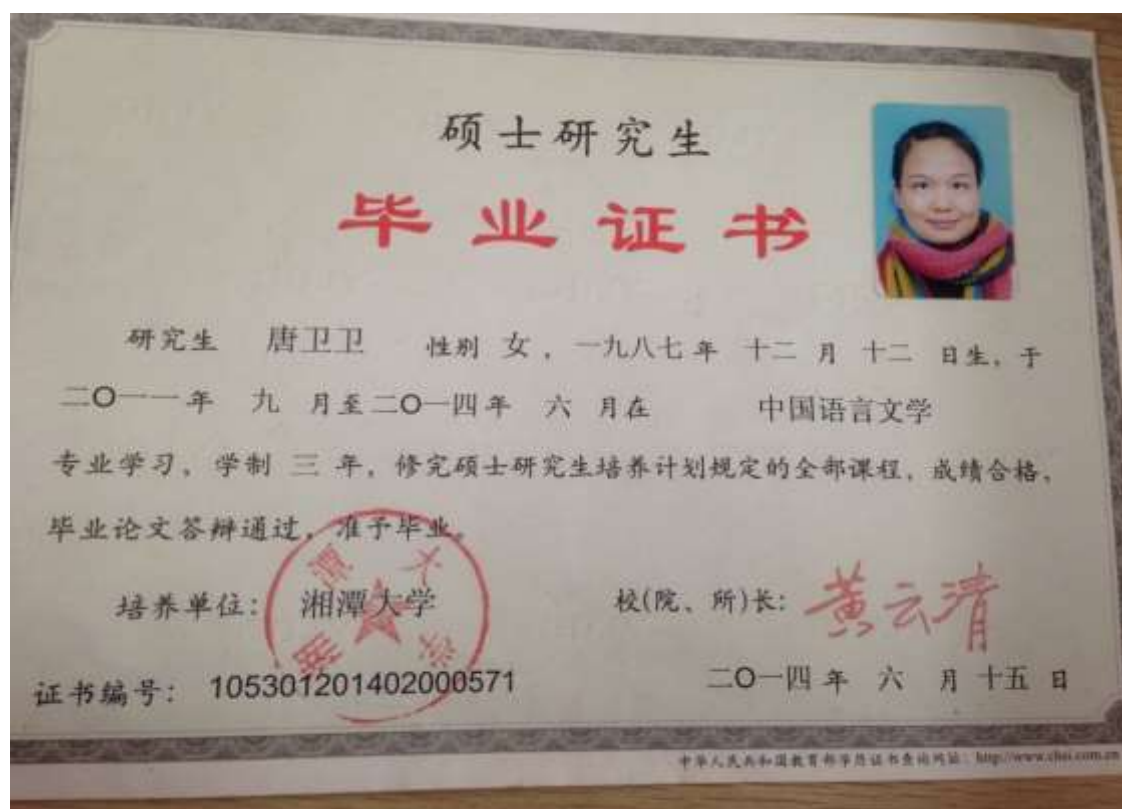 硕士研究生
毕业证书
研究生 唐卫卫 性别 女，一九八七年 十二 月 十二 日生，于
二〇一一年 九 月至二〇一四年 六 月在 中国语言文学
专业学习，学制 三 年，修完硕士研究生培养计划规定的全部课程，成绩合格，
毕业论文答辩通过，准予毕业。
培养单位： 湘潭大学 校(院、所)长： 黄云清
湘潭大学
证书编号： 105301201402000571 二〇一四年 六 月 十五 日
中华人民共和国教育部学历证书查询网站：http://www.chsi.com.cn